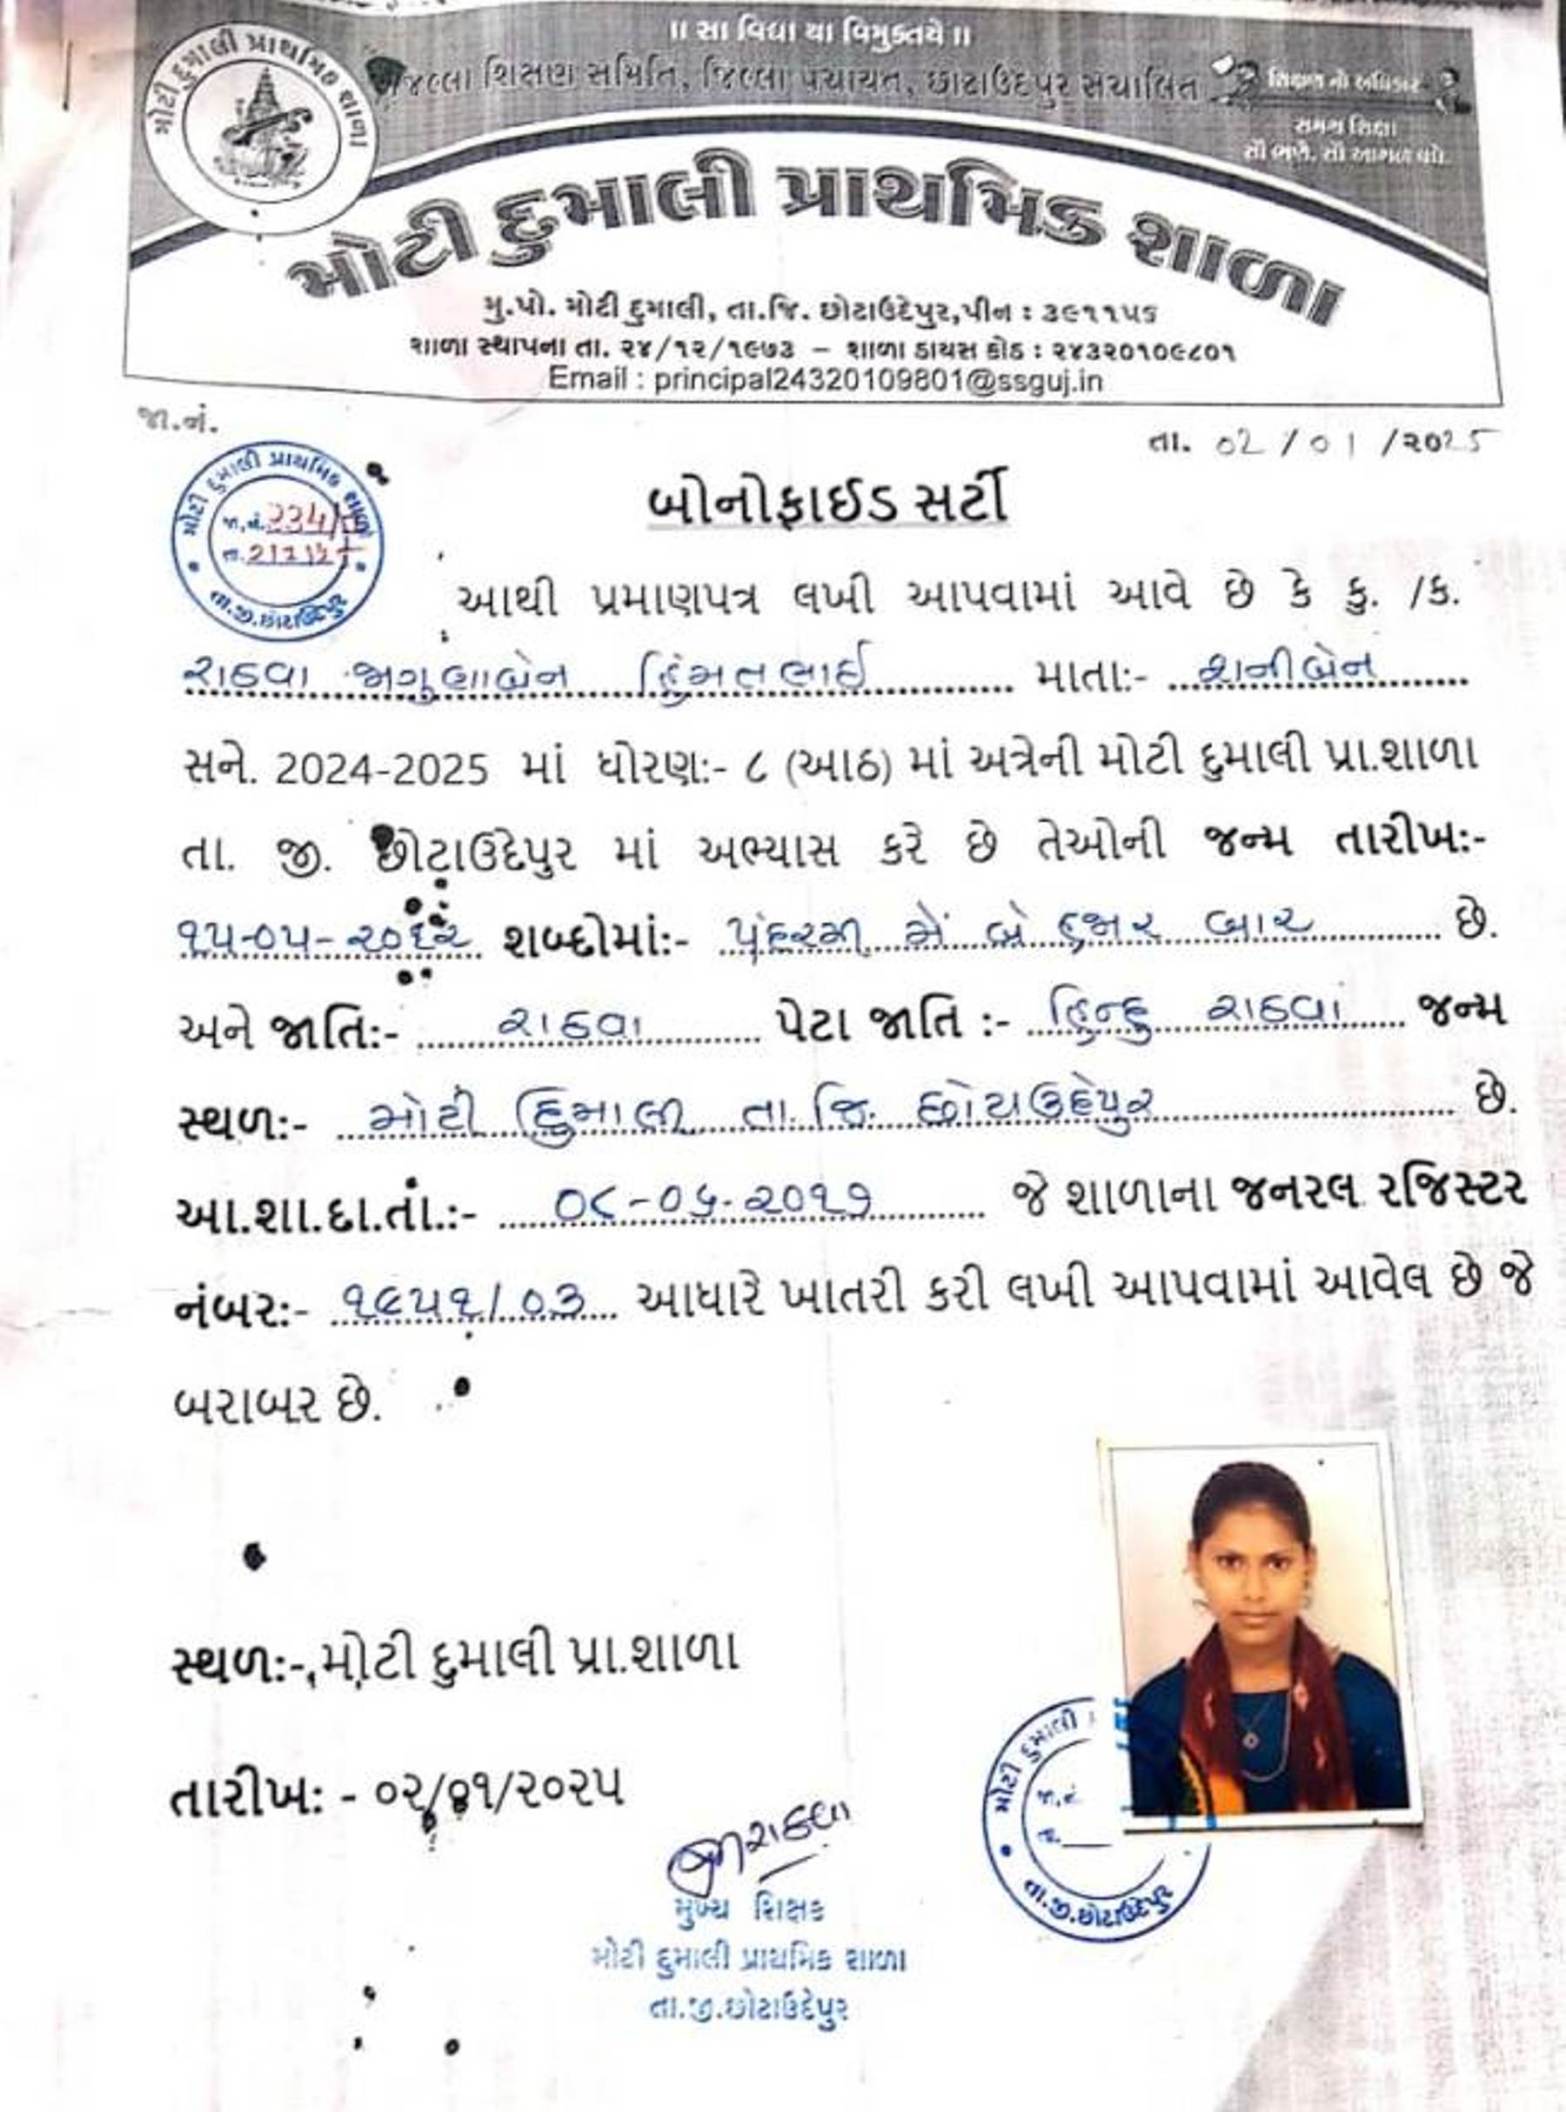 ॥ સા વિદ્યા યા વિમુક્તયે ॥
જિલ્લા શિક્ષણ સમિતિ, જિલ્લા પંચાયત, છોટાઉદેપુર સંચાલિત
શિક્ષણ નો અધિકાર
સમગ્ર શિક્ષા
સૌ ભણે. સૌ આગળ વધે.
મોટી દુમાલી પ્રાથમિક શાળા
મોટી દુમાલી પ્રાથમિક શાળા
મુ.પો. મોટી દુમાલી, તા.જિ. છોટાઉદેપુર,પીન : ૩૯૧૧૫૬
શાળા સ્થાપના તા. ૨૪/૧૨/૧૯૭૩ – શાળા ડાયસ કોડ : ૨૪૩૨૦૧૦૯૮૦૧
Email : principal24320109801@ssguj.in
જા.નં.
તા. 02/01/૨૦25
મોટી દુમાલી પ્રાથમિક શાળા
જા.નં.
તા.
તા.જી.છોટાઉદેપુર
બોનોફાઈડ સર્ટી
આથી પ્રમાણપત્ર લખી આપવામાં આવે છે કે કુ. /ક.
રાઠવા હિંમતભાઈ માતા:- શનીબેન
સને. 2024-2025 માં ધોરણ:- ૮ (આઠ) માં અત્રેની મોટી દુમાલી પ્રા.શાળા
તા. જી. છોટાઉદેપુર માં અભ્યાસ કરે છે તેઓની જન્મ તારીખ:-
૧૫-૦૫-૨૦૧૨ શબ્દોમાં:- પંદરમી મે બે હજાર બાર છે.
અને જાતિ:- રાઠવા પેટા જાતિ :- હિન્દુ રાઠવા જન્મ
સ્થળ:- મોટી દુમાલી તા.જિ. છોટાઉદેપુર છે.
આ.શા.દા.તાં.:- ૦૮-૦૬-૨૦૧૭ જે શાળાના જનરલ રજિસ્ટર
નંબર:- ૧૯૫૧/૦૩ આધારે ખાતરી કરી લખી આપવામાં આવેલ છે જે
બરાબર છે.
સ્થળ:- મોટી દુમાલી પ્રા.શાળા
તારીખ: - ૦૨/૦૧/૨૦૨૫
મુખ્ય શિક્ષક
મોટી દુમાલી પ્રાથમિક શાળા
તા.જી.છોટાઉદેપુર
મોટી દુમાલી
જા.નં.
તા.
તા.જી.છોટાઉદેપુર